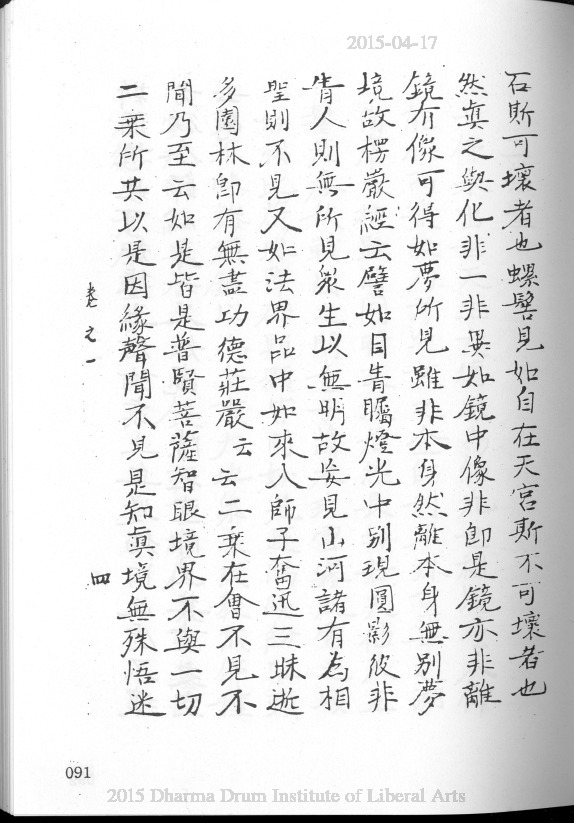 2015-04-17
石斯可壞者也螺髻見如自在天宮斯不可壞者也
然真之與化非一非異如鏡中像非即是鏡亦非離
鏡有像可得如夢所見雖非本身然離本身無別夢
境故楞嚴經云譬如目眚矚燈光中別現圓影彼非
眚人則無所見眾生以無明故妄見山河諸有為相
聖則不見又如法界品中如來入師子奮迅三昧逝
多園林即有無盡功德莊嚴云云二乘在會不見不
聞乃至云如是皆是普賢菩薩智眼境界不與一切
二乘所共以是因緣聲聞不見是知真境無殊悟迷
卷之一
四
091
2015 Dharma Drum Institute of Liberal Arts